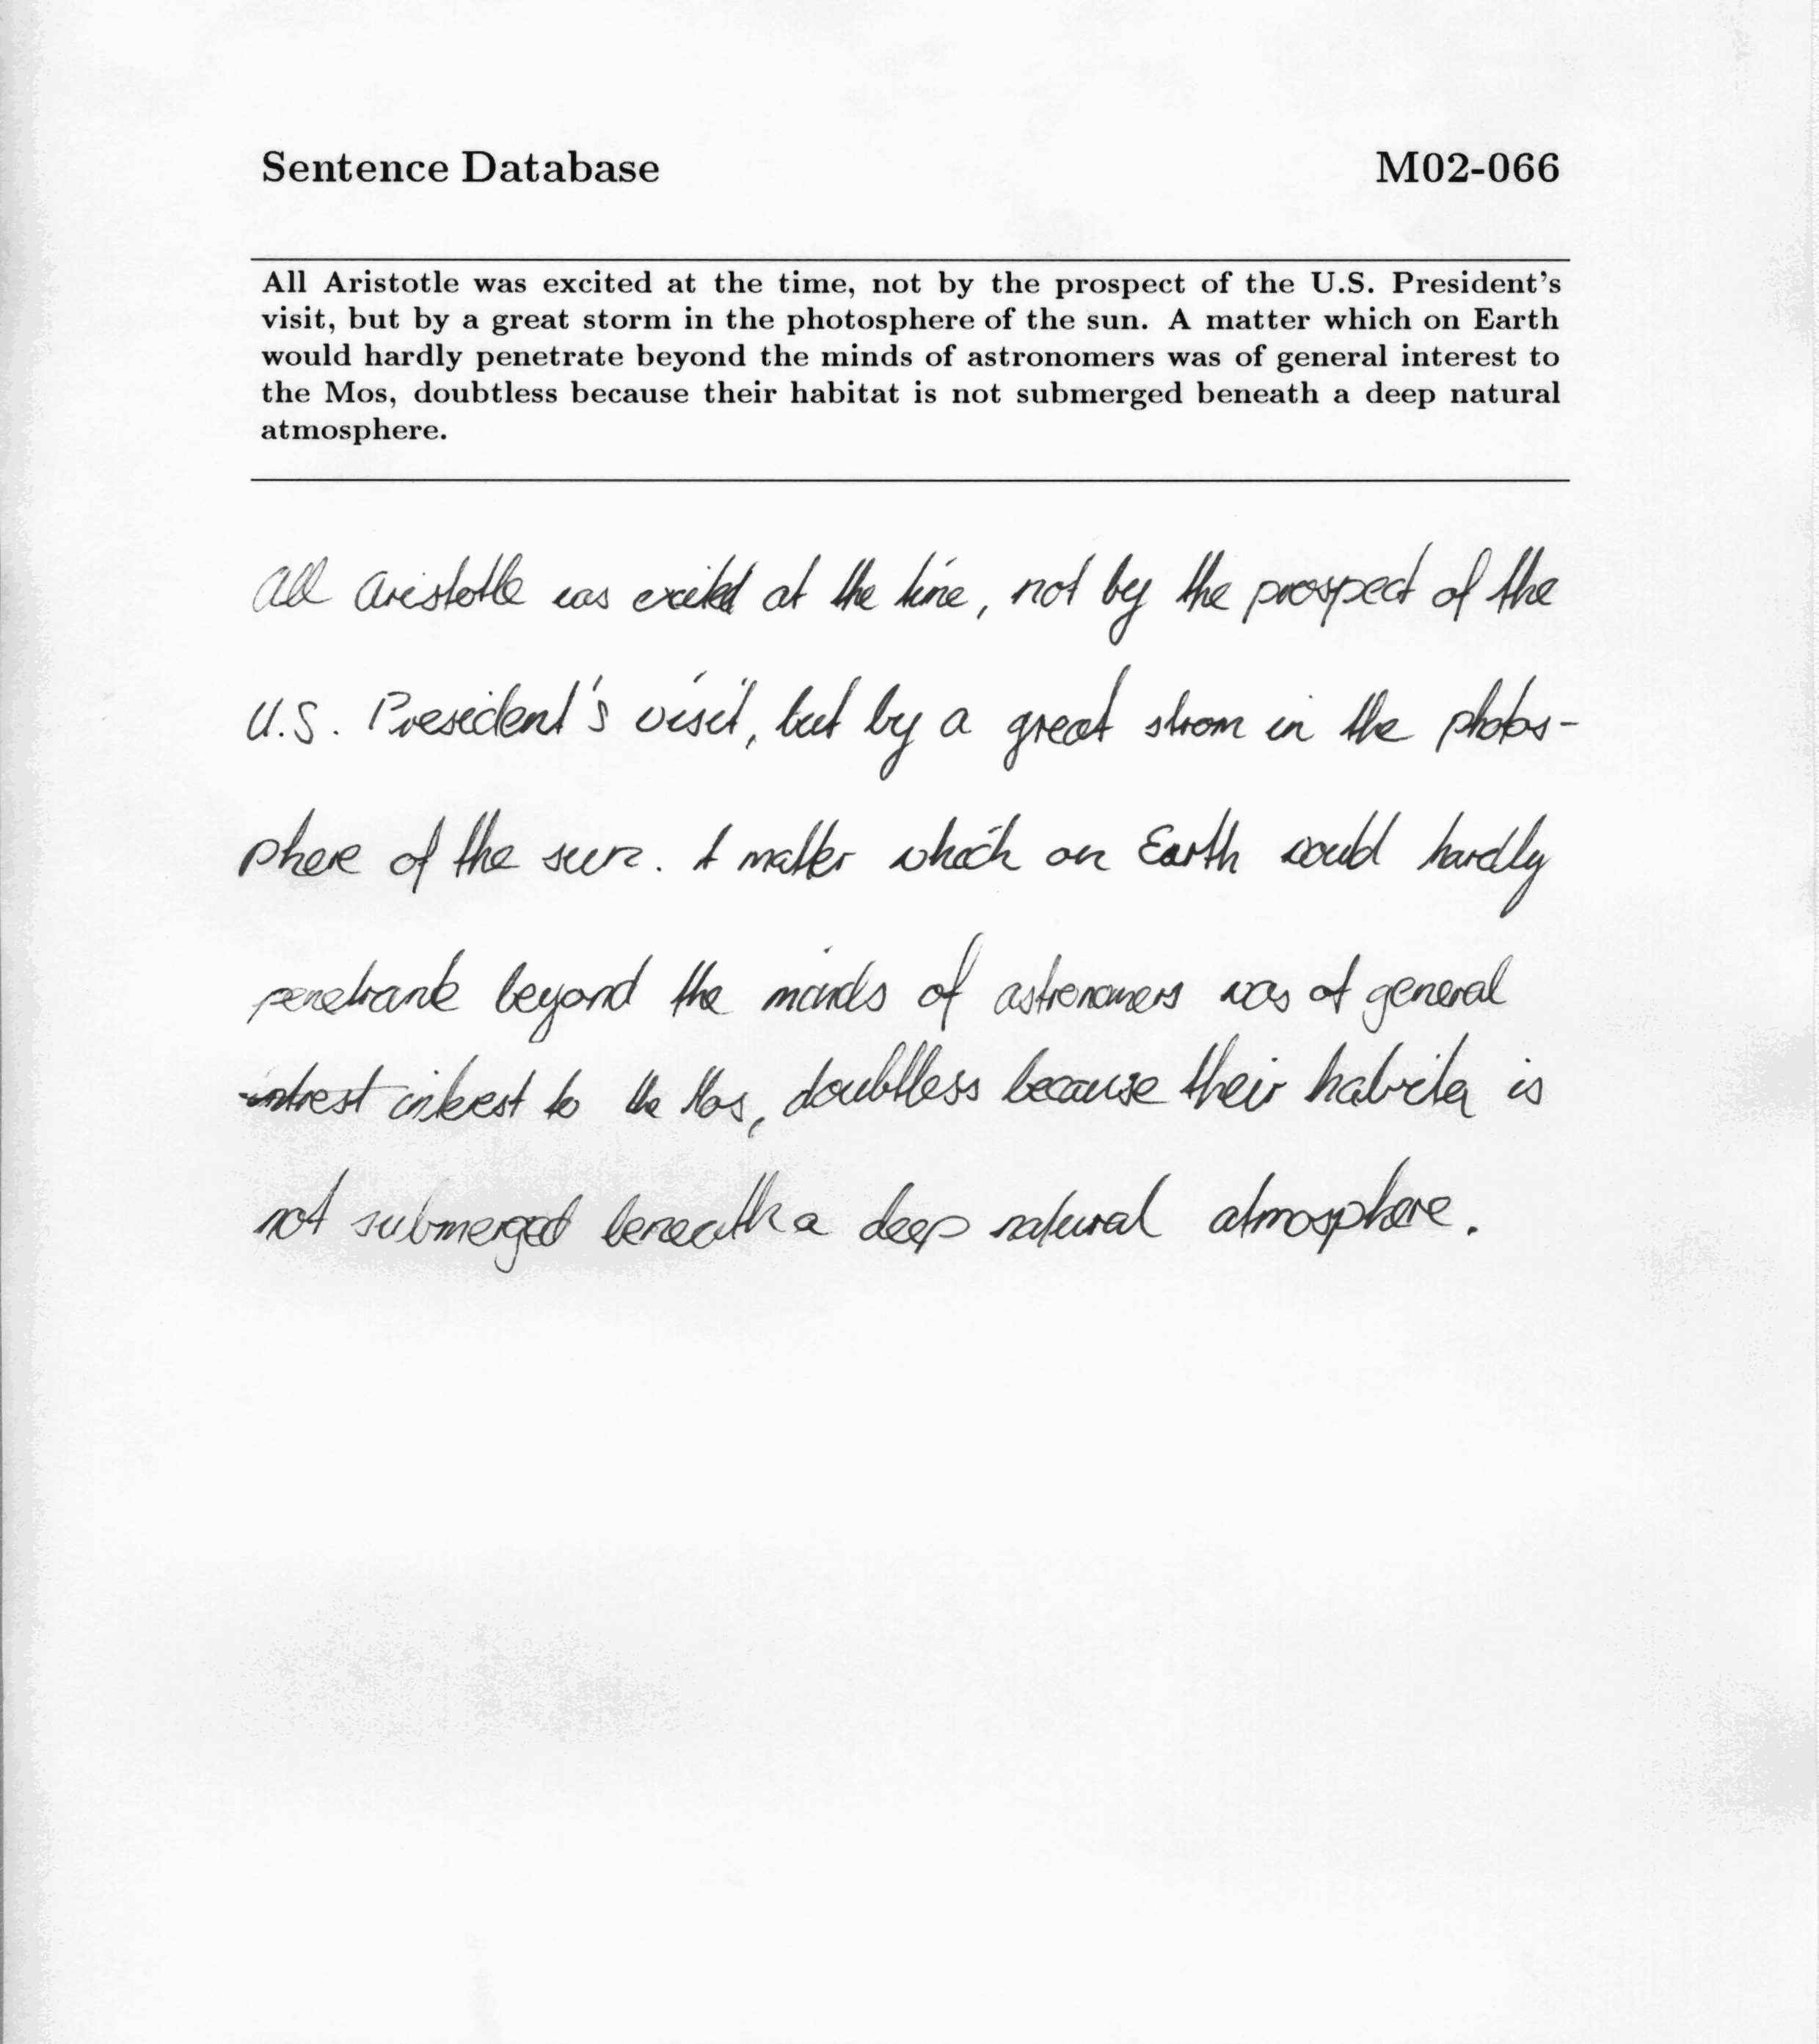 Sentence Database M02-066
All Aristotle was excited at the time, not by the prospect of the U.S. President's
visit, but by a great storm in the photosphere of the sun. A matter which on Earth
would hardly penetrate beyond the minds of astronomers was of general interest to
the Mos, doubtless because their habitat is not submerged beneath a deep natural
atmosphere.
All Aristotle was excited at the time, not by the prospect of the
U.S. President's visit, but by a great strom in the photos-
phere of the sun. A matter which on Earth would hardly
penetrante beyond the minds of astronomers was of general
intrest interest to the Mos, doubtless because their habita is
not submerged beneath a deep natural atmosphere.